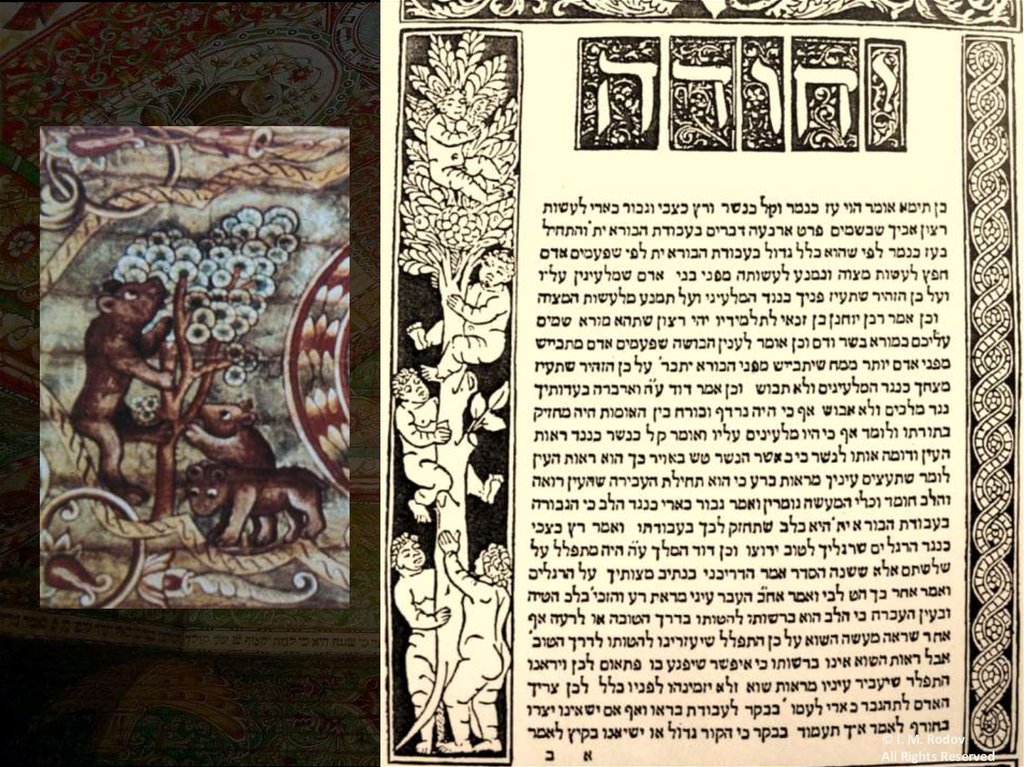 יהודה
בן תימא אומר הוי עז כנמר וקל כנשר ורץ כצבי וגבור כארי לעשות
רצון אביך שבשמים פרט ארבעה דברים בעבודת הבורא ית' והתחיל
בעז כנמר לפי שהוא כלל גדול בעבודת הבורא ית לפי שפעמים אדם
חפץ לעשות מצוה ונמנע לעשותה מפני בני אדם שמלעיגין עליו
ועל כן הזהיר שתעיז פניך כנגד המלעיגי ועל תמנע מלעשות המצוה
וכן אמר רבן יוחנן בן זכאי לתלמידיו יהי רצון שתהא מורא שמים
עליכם כמורא בשר ודם וכן אומר לענין הבושה שפעמים אדם מתבייש
מפני אדם יותר ממה שיתבייש מפני הבורא יתבר' על כן הזהיר שתעיז
מצחך כנגד המלעיגים ולא תבוש וכן אמר דוד ע"ה ואדברה בעדותיך
נגד מלכים ולא אבוש אף כי היה נרדף ובורח בין האומות היה מחזיק
בתורתו ולומד אף כי היו מלעיגים עליו ואומר קל כנשר כנגד ראות
העין ודומה אותו לנשר כי כאשר הנשר שט באויר כך הוא ראות העין
לומר שתעצים עיניך מראות ברע כי הוא תחילת העבירה שהעין רואה
והלב חומד וכלי המעשה גומרין ואמר גבור כארי כנגד הלב כי הגבורה
בעבודת הבורא ית' היא בלב שתחזק לבך בעבודתו ואמר רץ כצבי
כנגד הרגלים שרגליך לטוב ירוצו וכן דוד המלך ע"ה היה מתפלל על
שלשתם אלא ששנה הסדר אמר הדריכני בנתיב מצותיך על הרגלים
ואמר אחר כך הט לבי ואמר אח"כ העבר עיני מראת רע והזכי' בלב הטיה
ובעין העברה כי הלב הוא ברשותו להטותו בדרך הטובה או לרעה אף
אחר שראה מעשה השוא על כן התפלל שיעזרינו להטותו לדרך הטוב'
אבל ראות השוא אינו ברשותו כי איפשר שיפגע בו פתאום לכן ויראנו
התפלד שיעביר עיניו מראות שוא ולא יזמינהו לפניו כלל לכן צריך
האדם להתגבר כארי לעמו' בבקר לעבודת בוראו ואף אם ישאינו יצרו
בחורף לאמר איך תעמוד בבקר כי הקור גדול או ישיאנו בקיץ לאמר
א ב
© I. M. Rodov
All Rights Reserved